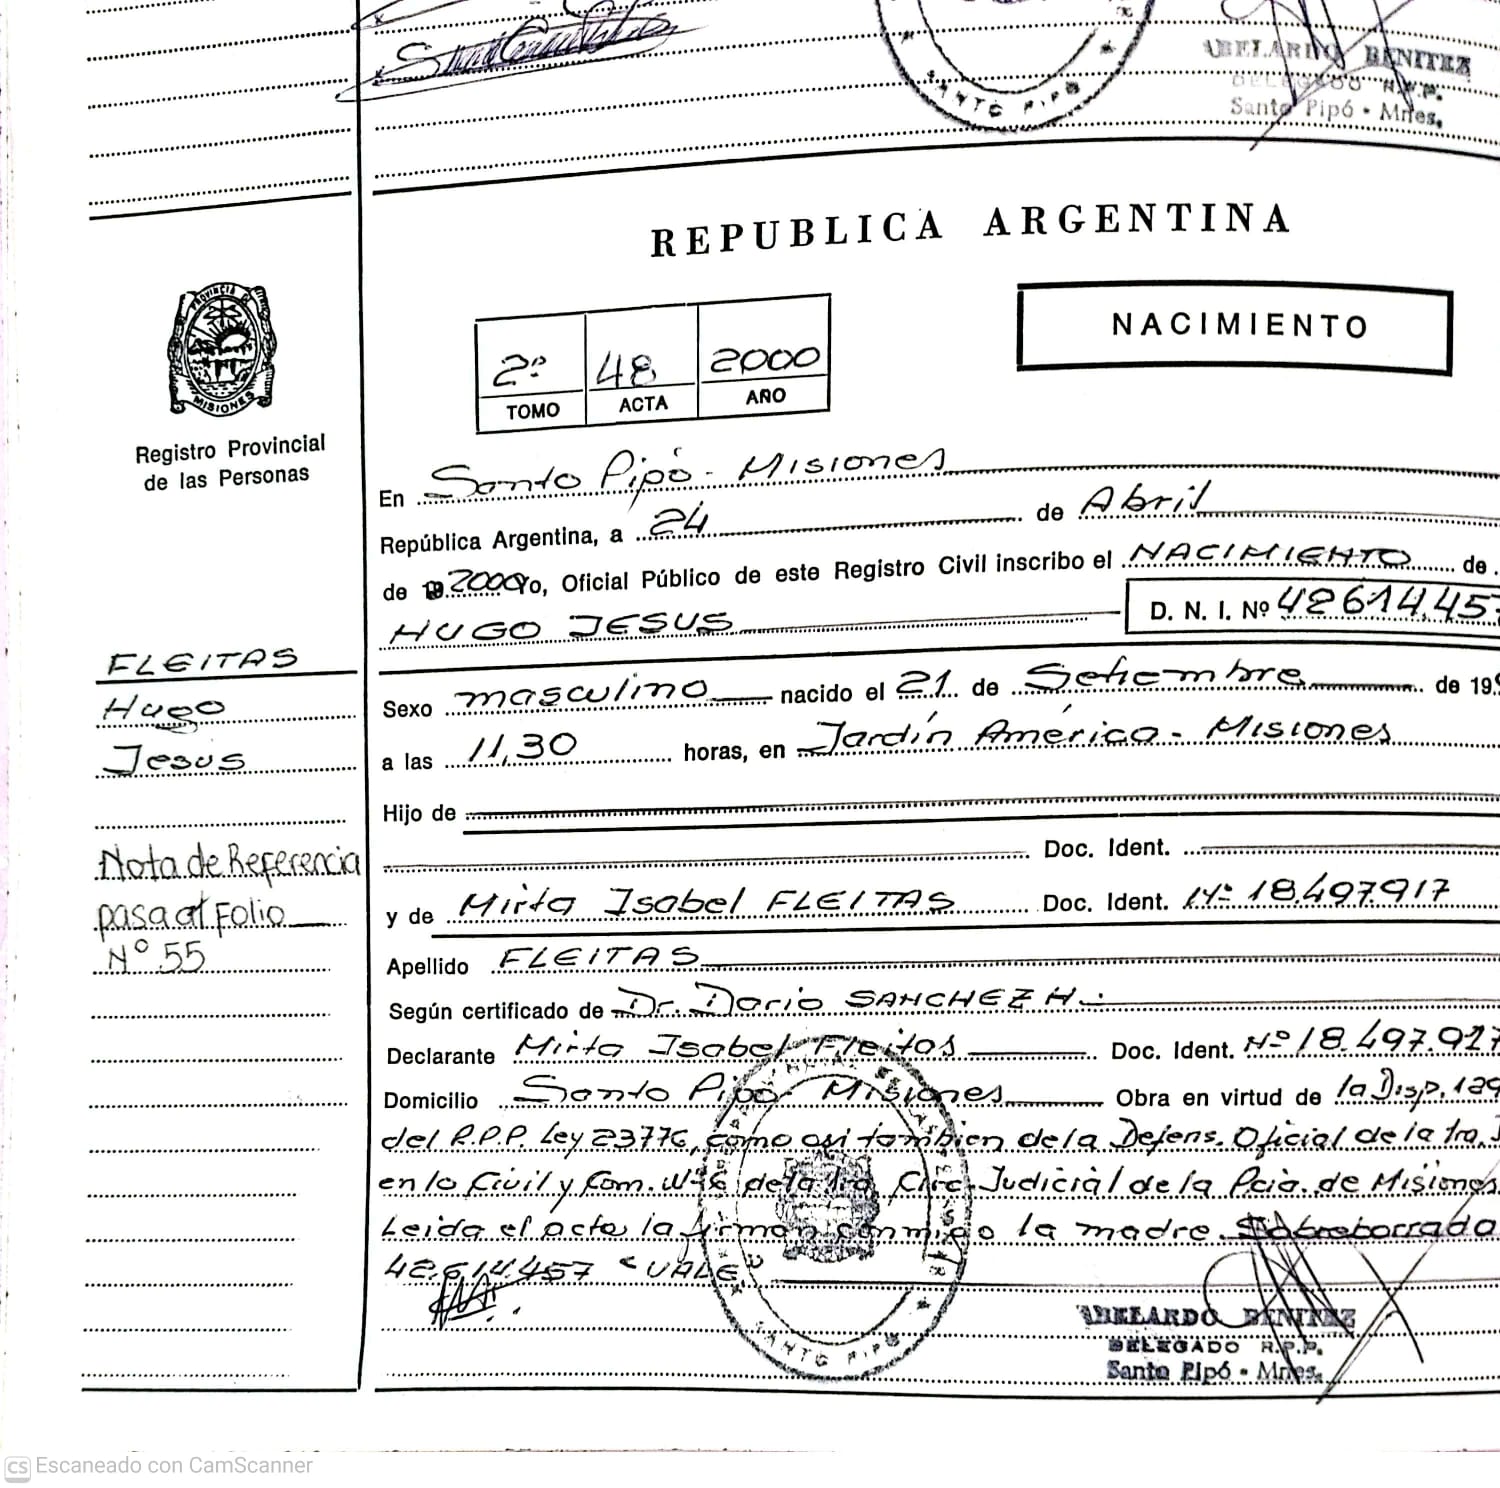 SANTO PIPÓ
ABELARDO BENITEZ
DELEGADO R.P.P.
Santo Pipó - Mnes.
REPUBLICA ARGENTINA
NACIMIENTO
2º 48 2000
TOMO ACTA AÑO
PROVINCIA DE
MISIONES
Registro Provincial
de las Personas
En Santo Pipó - Misiones
República Argentina, a 24 de Abril
de 2000 Yo, Oficial Público de este Registro Civil inscribo el NACIMIENTO de
HUGO JESUS D. N. I. Nº 42.614.45
FLEITAS
Hugo
Jesús
Sexo masculino nacido el 21 de Setiembre de 19
a las 11,30 horas, en Jardín América - Misiones
Hijo de
Doc. Ident.
Nota de Referencia
pasa al Folio
Nº 55
y de Mirta Isabel FLEITAS Doc. Ident. Nº 18.497.917
Apellido FLEITAS
Según certificado de Dr. Dario SANCHEZ H.
Declarante Mirta Isabel Fleitas Doc. Ident. Nº 18.497.917
Domicilio Santo Pipó - Misiones Obra en virtud de la Disp. 129
del R.P.P. Ley 23776, como asi tambien de la Defens. Oficial de la 1ra.
en lo Civil y Com. Nº6 de la 1ra Circ. Judicial de la Pcia. de Misiones
Leida el acta la firman conmigo la madre Sobreborrado
42.614.457 "VALE"
SANTO PIPÓ
ABELARDO BENITEZ
DELEGADO R.P.P.
Santo Pipó - Mnes.
CS Escaneado con CamScanner